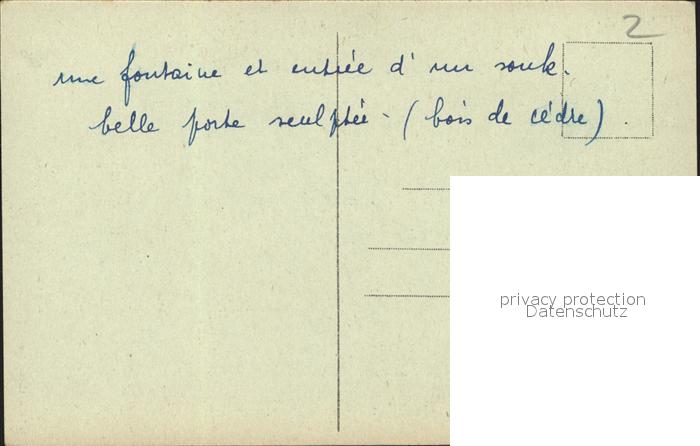 2
une fontaine et entrée d'un souk.
belle porte sculptée - (bois de cèdre).
privacy protection
Datenschutz